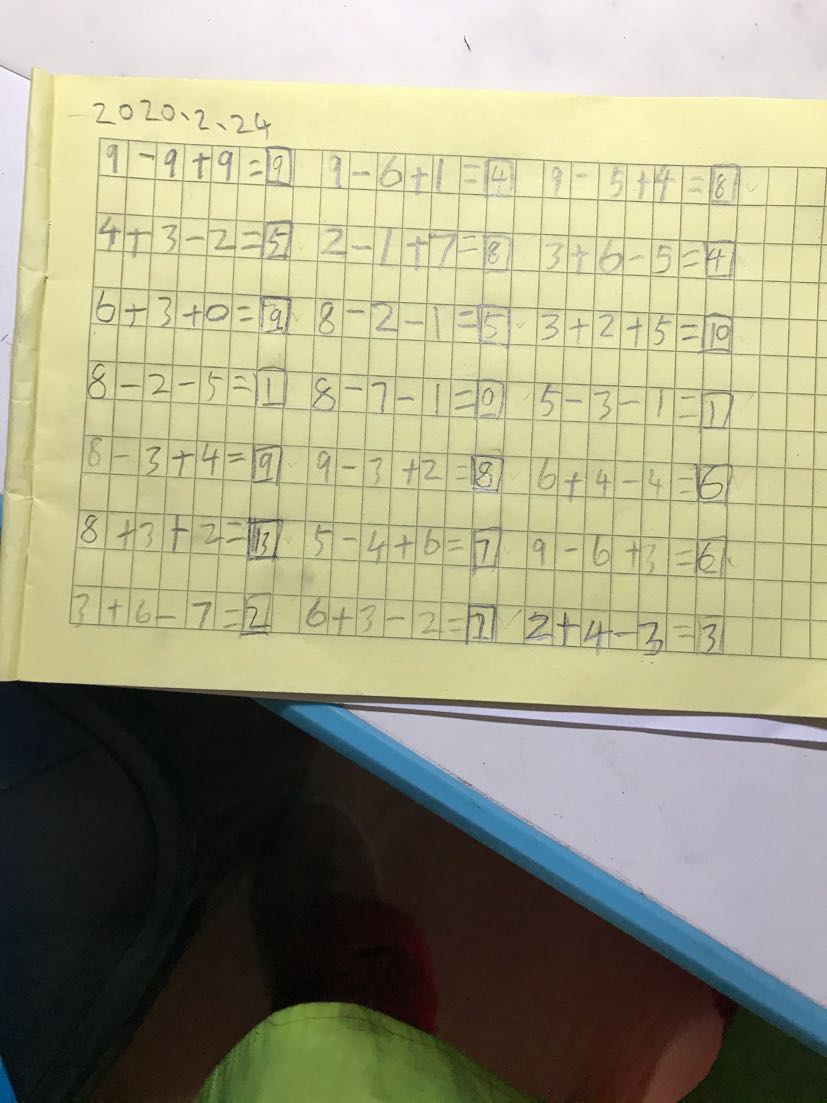 2020、2、24
9-9+9=9 9-6+1=4 9-5+4=8
4+3-2=5 2-1+7=8 3+6-5=4
6+3+0=9 8-2-1=5 3+2+5=10
8-2-5=1 8-7-1=0 5-3-1=1
8-3+4=9 9-3+2=8 6+4-4=6
8+3+2=13 5-4+6=7 9-6+3=6
3+6-7=2 6+3-2=7 2+4-3=3